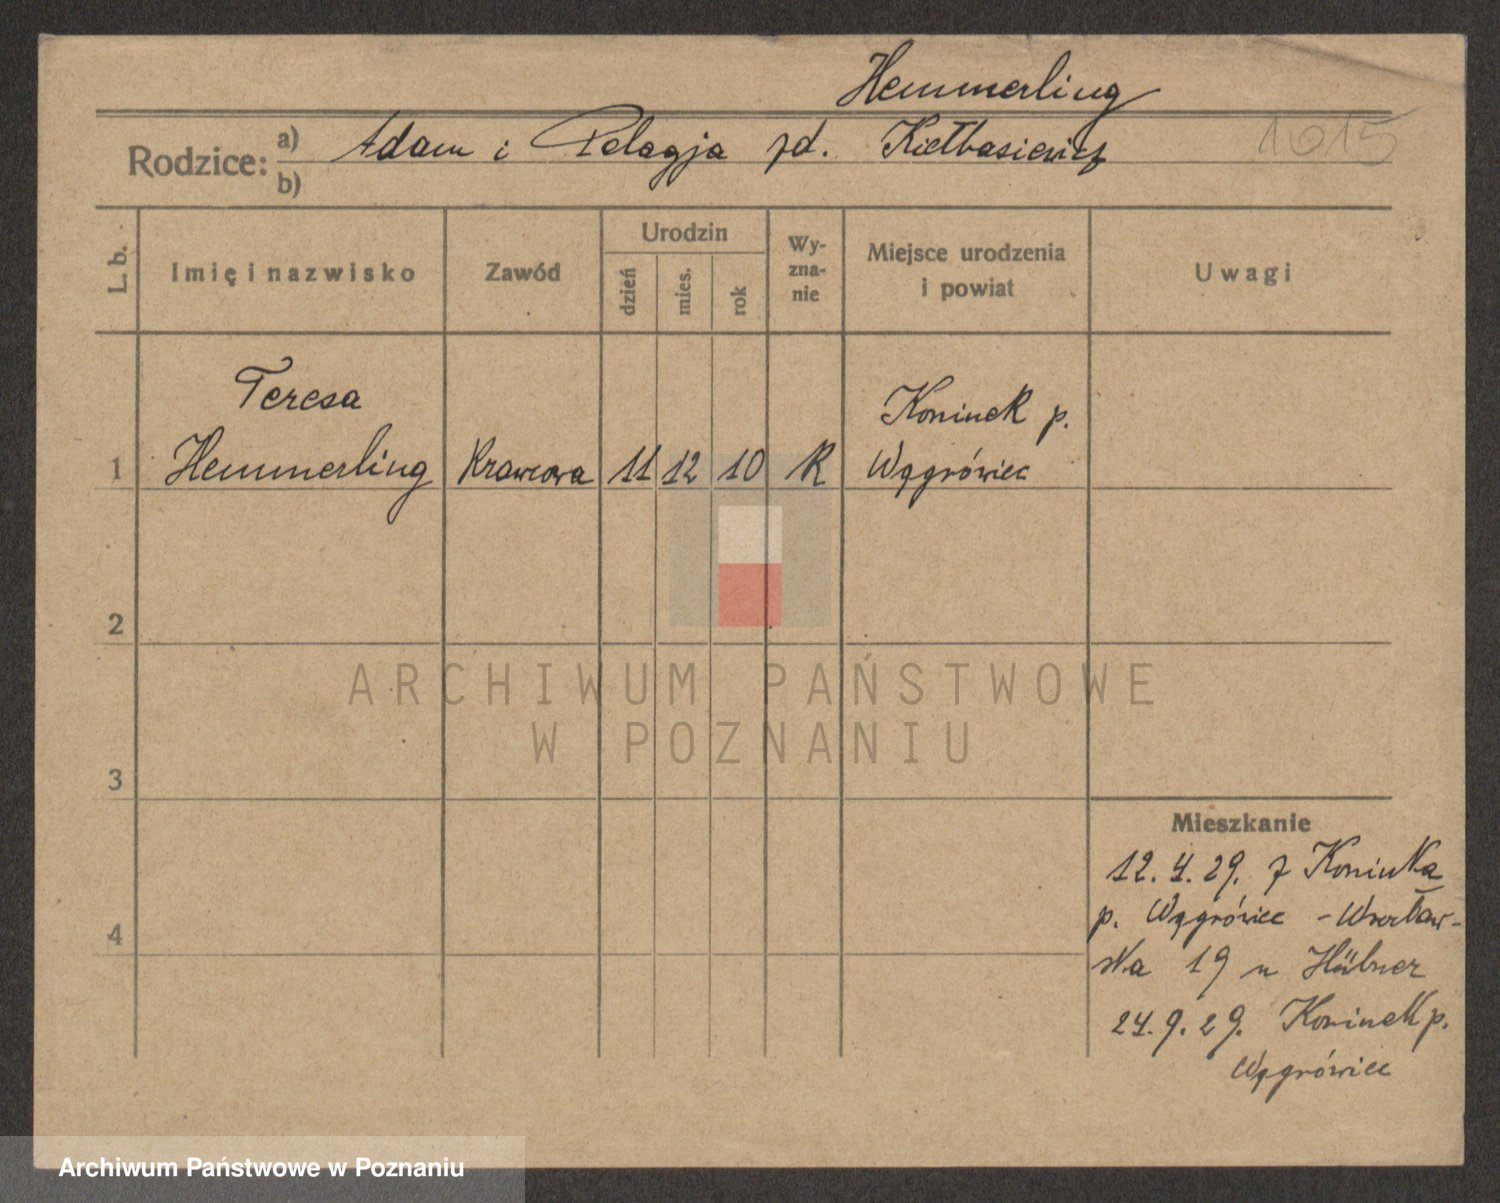 Hemmerling
Rodzice: a) Adam i Pelagja zd. Kiełbasiewicz
1015
b)
L. b.
Imię i nazwisko
Zawód
Urodzin
dzień
mies.
rok
Wy-
zna-
nie
Miejsce urodzenia
i powiat
Uwagi
Teresa
1 Hemmerling Krawcowa 11 12 10 R
Koninek p.
Wągrówiec
2
3
4
Mieszkanie
12.4.29. z Koninka
p. Wągrówiec - Wrocław-
ska 19 u Hübner
24.9.29. Koninek p.
Wągrówiec
ARCHIWUM PAŃSTWOWE
W POZNANIU
Archiwum Państwowe w Poznaniu